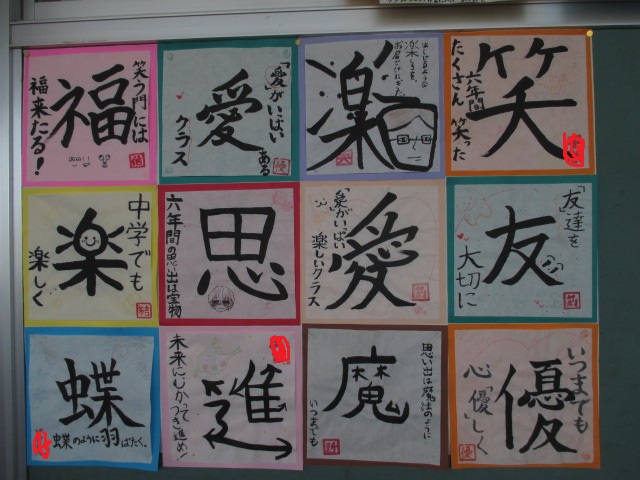 福
笑う門には
福来たる!
愛
「愛」がいっぱい
ある
クラス
楽
笑
六年間
たくさん 笑った
楽
中学でも
楽しく
思
六年間の思い出は宝物
愛
「愛」がいっぱい
楽しいクラス
友
「友達を
大切に
蝶
蝶のように羽ばたく。
進
未来にむかってつき進め!
魔
思い出は魔法のように
いつまでも
優
いつまでも
心「優」しく